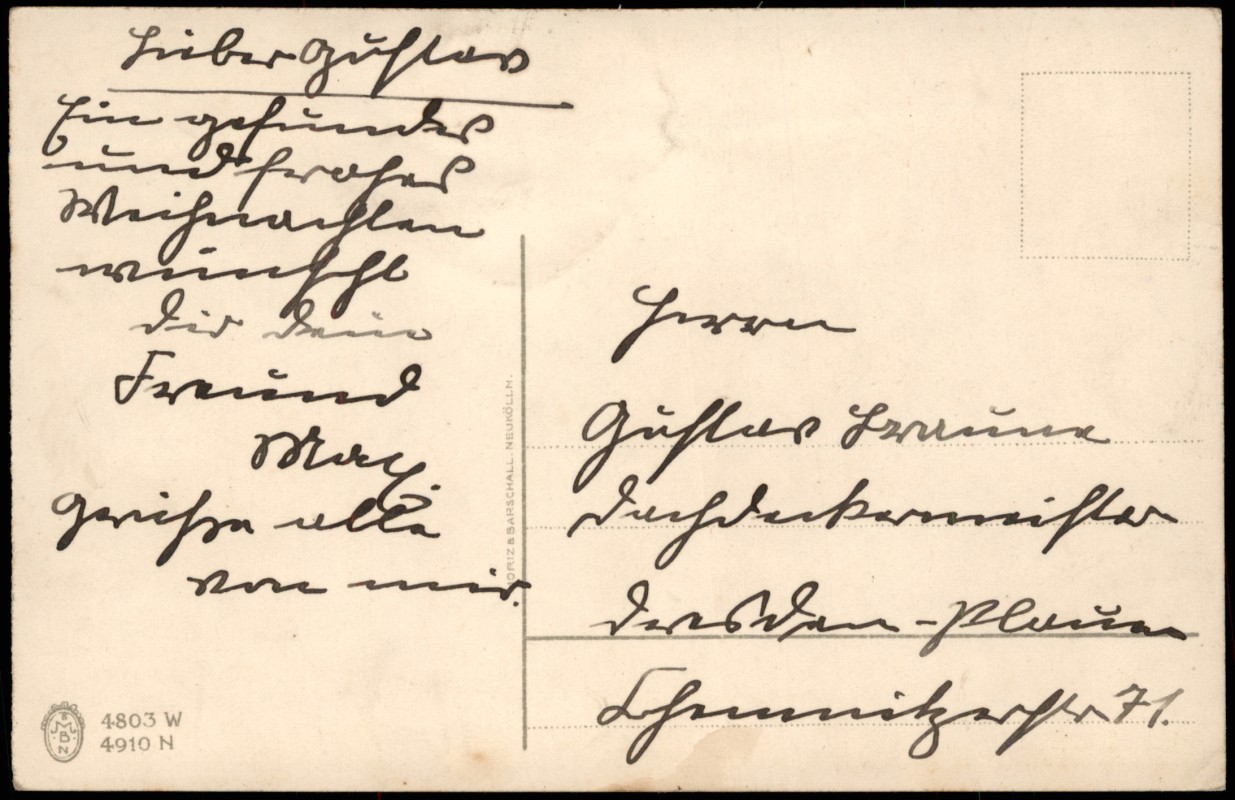 Lieber Gustav
Ein gesundes
und frohes
Weihnachten
wünscht
Dir Dein
Freund
Max.
Grüße alle
von mir.
Herrn
Gustav Braune
Dachdeckermeister
Dresden-Plauen
Chemnitzerstr 71.
MORIZ & BARSCHALL. NEUKÖLLN.
MBN
4803 W
4910 N